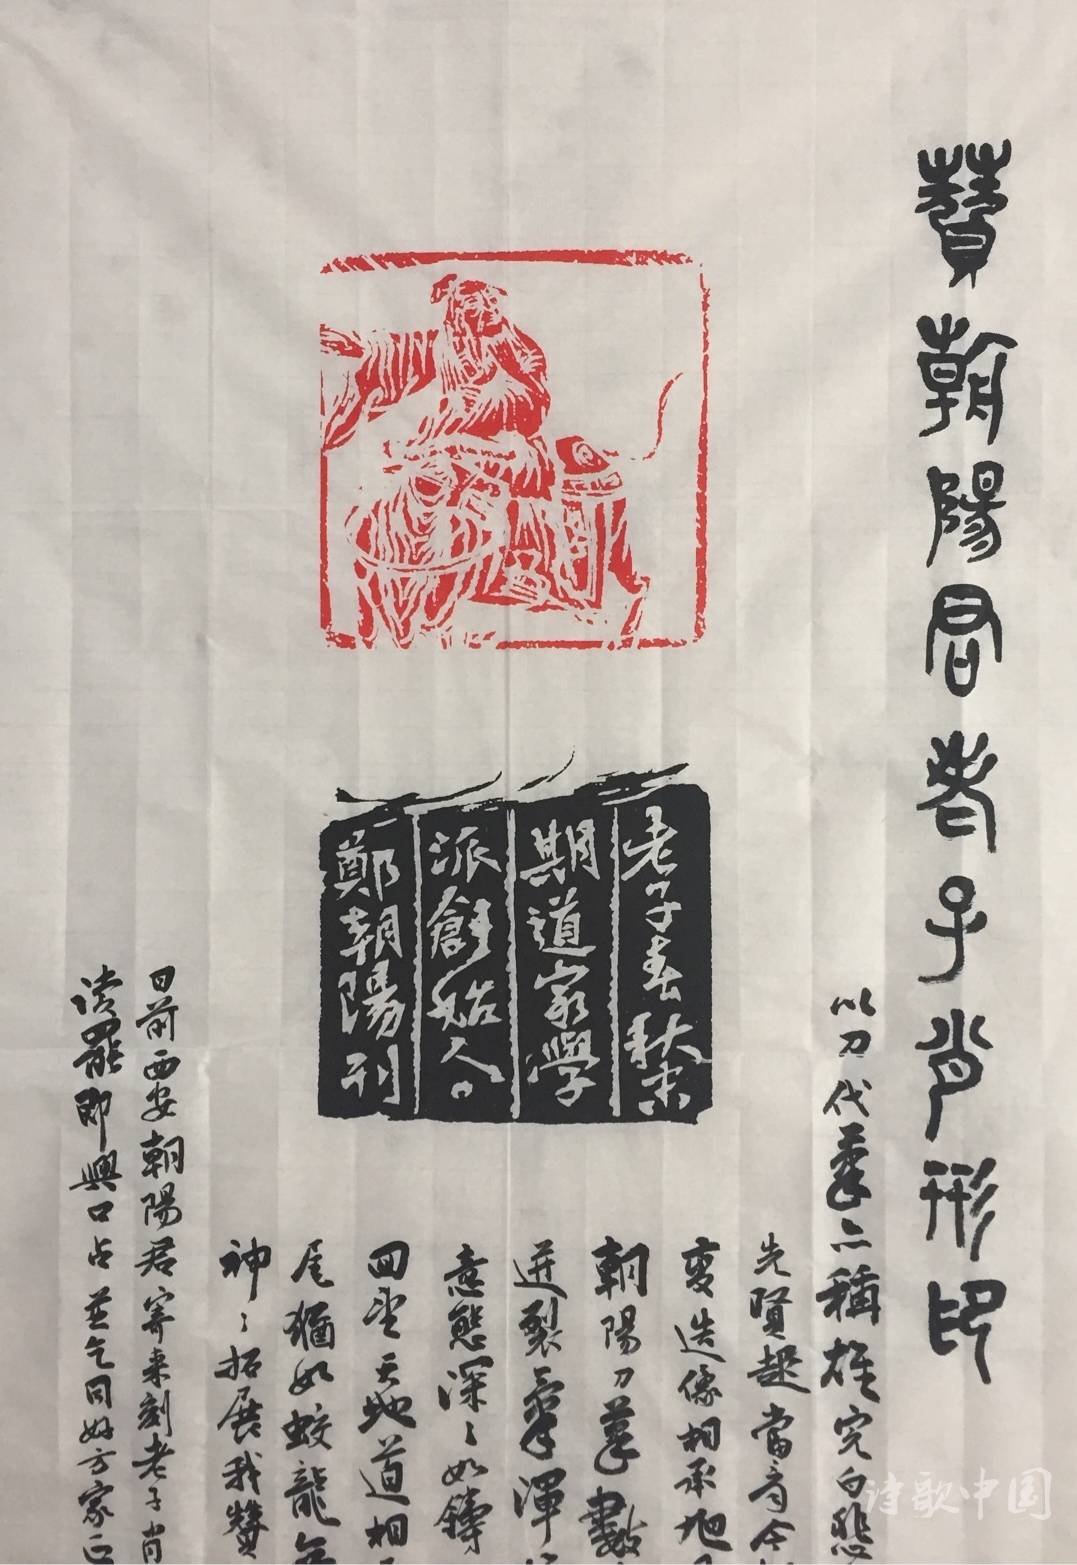 贊朝陽君老子肖形印
以刀代筆亦稱雄完白悲
先賢趣當局今
變造像相承旭
朝陽刀筆數
迸裂氣渾
意態深〻如鑄
回望天地道相
尾猶如蛟龍無
神〻拓展我贊
日前西安朝陽君寄來刻老子肖
讀罷即興口占並乞同好方家正
老子春秋末
期道家學
派創始人。
鄭朝陽刊
诗歌中国